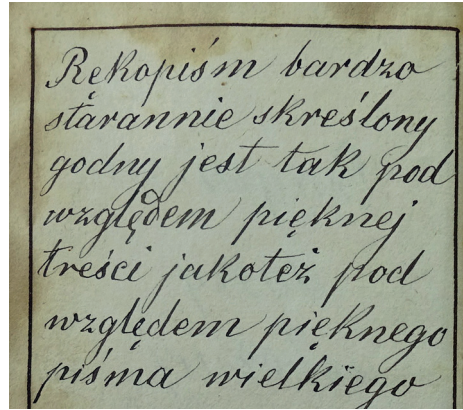 Rękopiśm bardzo
starannie skreślony
godny jest tak pod
względem pięknej
treści jakoteż pod
względem pięknego
piśma wielkiego